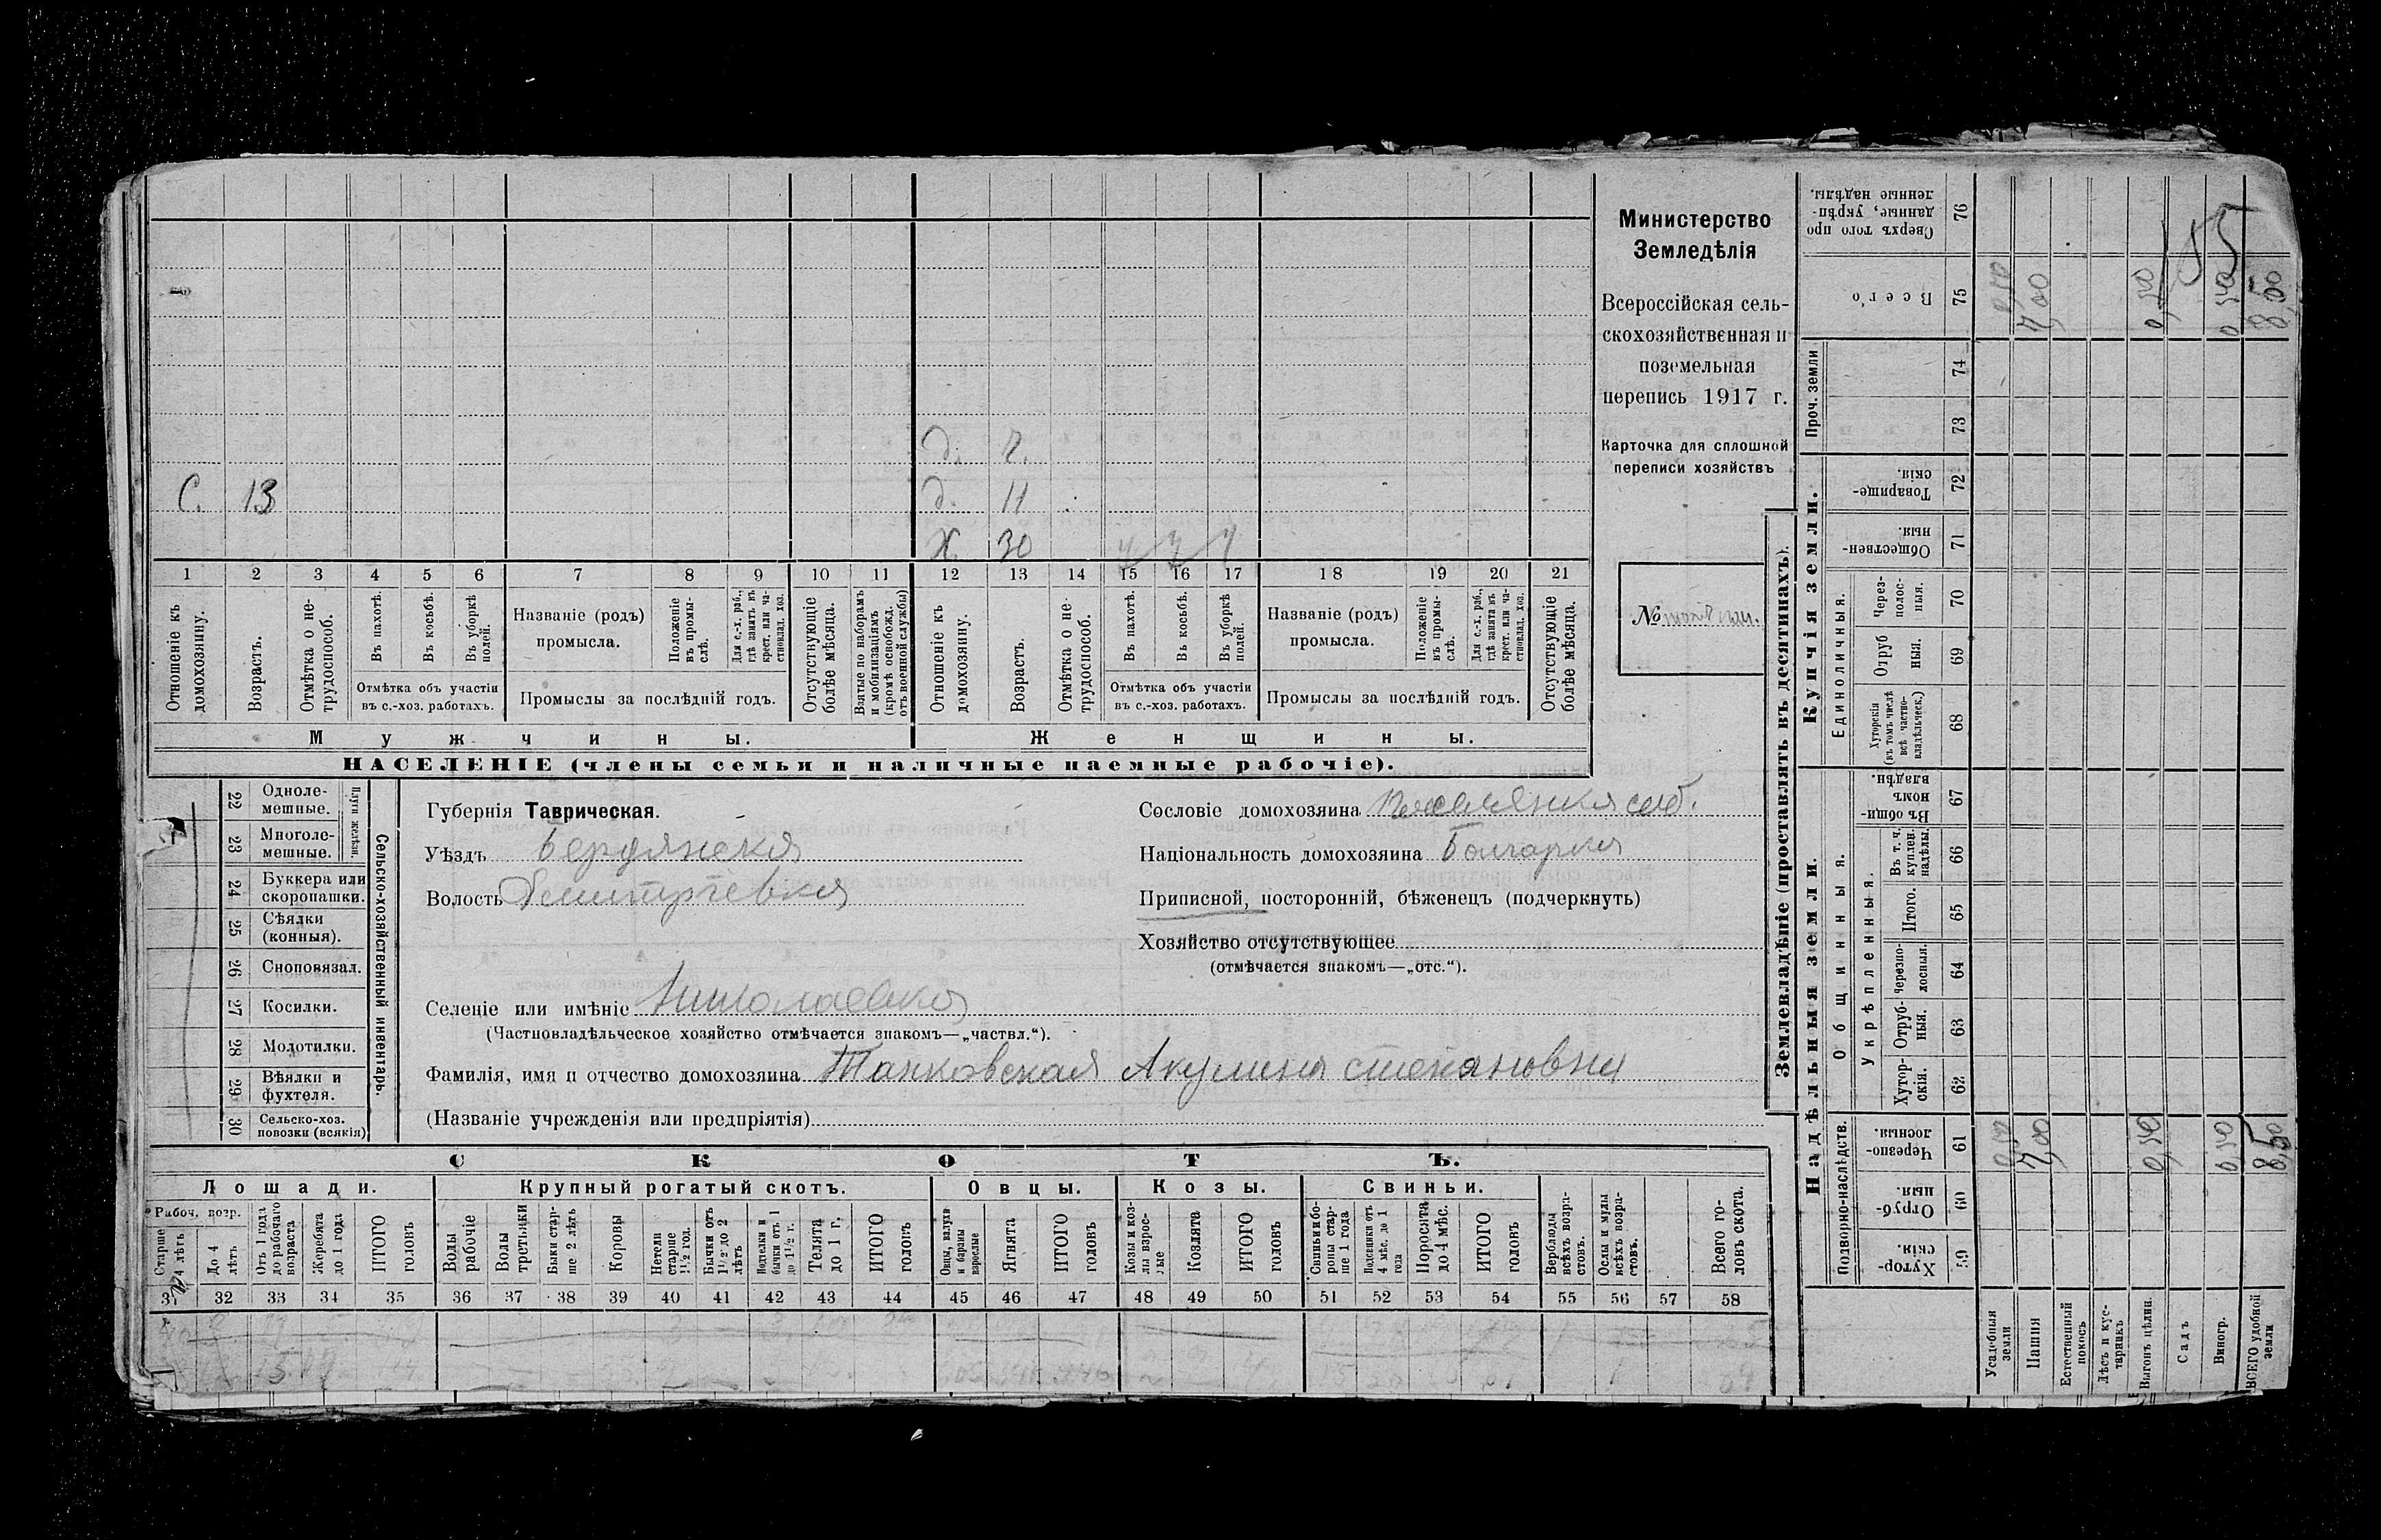 Министерство
Земледѣлія
Всероссійская сель-
скохозяйственная и
поземельная
перепись 1917 г.
Карточка для сплошной
переписи хозяйствъ
№
д. 7.
С. 13 д. 11
Х 30
1 2 3 4 5 6 7 8 9 10 11 12 13 14 15 16 17 18 19 20 21
Отношеніе къ домохозяину.
Возрастъ.
Отмѣтка о не-трудоспособ.
Въ пахотѣ.
Въ косьбѣ.
Въ уборкѣ полей.
Названіе (родъ) промысла.
Положеніе въ промы-слѣ.
Для с.-х. раб., гдѣ занятъ въ крест. или ча-стновлад. хоз.
Отсутствующіе болѣе мѣсяца.
Взятые по наборамъ и мобилизаціямъ (кромѣ освобожд. отъ военной службы)
Отношеніе къ домохозяину.
Возрастъ.
Отмѣтка о не-трудоспособ.
Въ пахотѣ.
Въ косьбѣ.
Въ уборкѣ полей.
Названіе (родъ) промысла.
Положеніе въ промы-слѣ.
Для с.-х. раб., гдѣ занята въ крест. или ча-стновлад. хоз.
Отсутствующіе болѣе мѣсяца.
Отмѣтка объ участіи въ с.-хоз. работахъ.
Промыслы за послѣдній годъ.
Отмѣтка объ участіи въ с.-хоз. работахъ.
Промыслы за послѣдній годъ.
Мужчины.
Женщины.
НАСЕЛЕНІЕ (члены семьи и наличные наемные рабочіе).
Сельско-хозяйственный инвентарь.
Плуги желѣзн.
22 Одноле-мешные.
23 Многоле-мешные.
24 Буккера или скоропашки.
25 Сѣялки (конныя).
26 Сноповязал.
27 Косилки.
28 Молотилки.
29 Вѣялки и фухтеля.
30 Сельско-хоз. повозки (всякія)
Губернія Таврическая.
Уѣздъ Бердянскя
Волость Демитртевкя
Селеніе или имѣніе Николаевкя
(Частновладѣльческое хозяйство отмѣчается знакомъ—„частвл.“).
Фамилія, имя и отчество домохозяина Танковская Акулина степяновня
(Названіе учрежденія или предпріятія)
Сословіе домохозяина
Національность домохозяина Болгаркя
Приписной, посторонній, бѣженецъ (подчеркнуть)
Хозяйство отсутствующее
(отмѣчается знакомъ—„отс.“).
СКОТЪ.
Лошади. Крупный рогатый скотъ. Овцы. Козы. Свиньи.
Рабоч. возр.
Старше 4 лѣтъ
До 4 лѣтъ
Отъ 1 года до рабочаго возраста
Жеребята до 1 года
ИТОГО головъ
Волы рабочіе
Волы третьяки
Быки стар-ше 2 лѣтъ
Коровы
Нетели старше 1½ год.
Бычки отъ 1½ до 2 лѣтъ
Подтелки и бычки отъ 1 до 1½ г.
Телята до 1 г.
ИТОГО головъ
Овцы, валухи и бараны взрослые
Ягнята
ИТОГО головъ
Козы и коз-лы взрос-лые
Козлята
ИТОГО головъ
Свиньи и бо-ровы стар-ше 1 года
Подсвинки отъ 4 мѣс. до 1 года
Поросята до 4 мѣс.
ИТОГО головъ
Верблюды всѣхъ возра-стовъ.
Ослы и мулы всѣхъ возра-стовъ.
Всего го-ловъ скота.
31 32 33 34 35 36 37 38 39 40 41 42 43 44 45 46 47 48 49 50 51 52 53 54 55 56 57 58
Землевладѣніе (проставлять въ десятинахъ).
Надѣльныя земли.
Купчія земли.
Проч. земли
Подворно-наслѣдств.
Общинныя.
Укрѣпленныя.
Единоличныя.
Хутор-скія. 59
Отруб-ныя. 60
Черезпо-лосныя. 61
Хутор-скія. 62
Отруб-ныя. 63
Черезпо-лосныя. 64
Итого. 65
Въ т. ч. куплен. надѣлы. 66
Въ общи-номъ владѣн. 67
Хуторскія (въ томъ числѣ всѣ частно-владѣльческ.) 68
Отруб ныя. 69
Через-полос-ныя. 70
Обществен-ныя. 71
Товарище-скія. 72
73
74
Всего 75
Сверхъ того про данные, укрѣп-ленные надѣлы. 76
Усадебныя земли 0,50 0,50
Пашня 7,00 7,00
Естественный покосъ
Лѣсъ и кус-тарникъ
Выгонъ цѣлин. 0,50 0,50
Садъ
Виногр. 0,50 0,50
ВСЕГО удобной земли 8,50 8,50